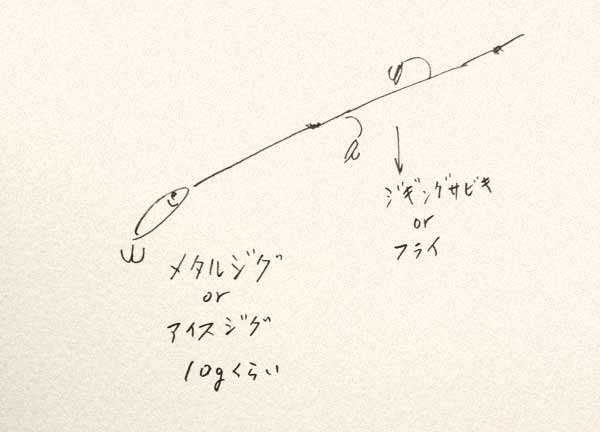 ジギングサビキ
or
フライ
メタルジグ
or
アイスジグ
10gくらい